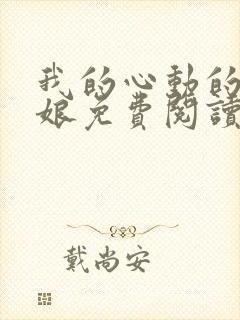 我的心動的
娘免費閱讀
戴尚安